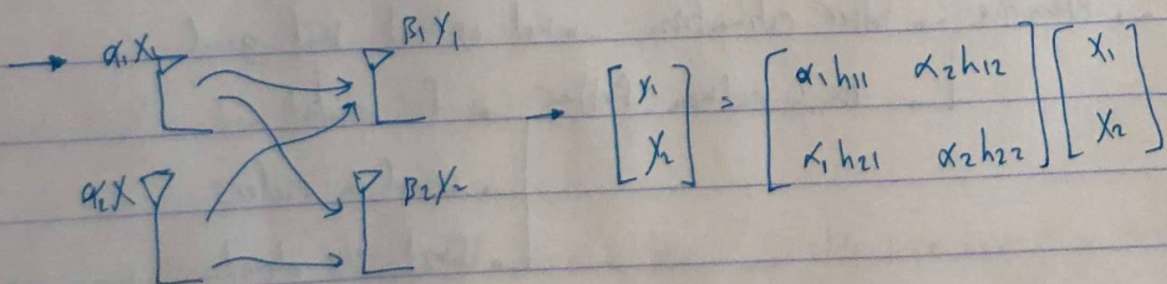 → α₁X₁ β₁Y₁
α₂X β₂Y₂
→ [Y₁ Y₂] = [α₁h₁₁ α₂h₁₂ α₁h₂₁ α₂h₂₂] [X₁ X₂]